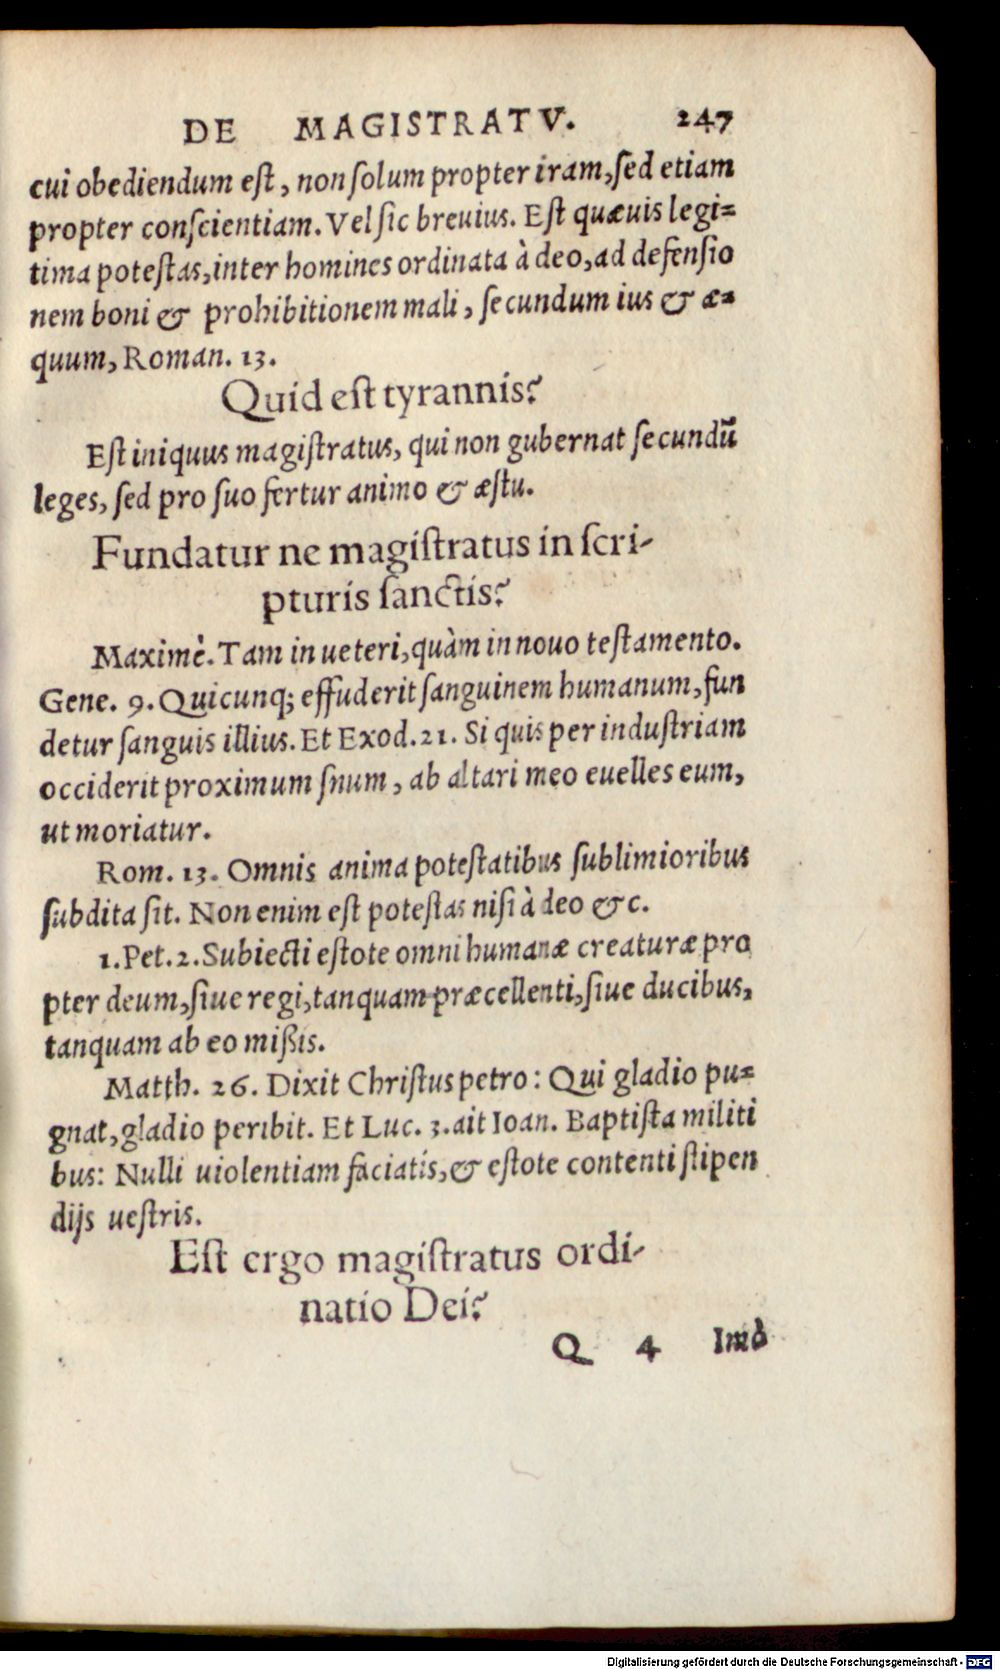 DE MAGISTRATV. 247
cui obediendum eſt, non ſolum propter iram, ſed etiam
propter conſcientiam. Vel ſic breuius. Eſt quæuis legi=
tima poteſtas, inter homines ordinata à deo, ad defenſio
nem boni & prohibitionem mali, ſecundum ius & æ=
quum, Roman. 13.
Quid eſt tyrannis?
Eſt iniquus magiſtratus, qui non gubernat ſecundũ
leges, ſed pro ſuo fertur animo & æſtu.
Fundatur ne magiſtratus in ſcri-
pturis ſanctis?
Maximè. Tam in ueteri, quàm in nouo teſtamento.
Gene. 9. Quicunq; effuderit ſanguinem humanum, fun
detur ſanguis illius. Et Exod. 21. Si quis per induſtriam
occiderit proximum ſnum, ab altari meo euelles eum,
ut moriatur.
Rom. 13. Omnis anima poteſtatibus ſublimioribus
ſubdita ſit. Non enim eſt poteſtas niſi à deo &c.
1. Pet. 2. Subiecti eſtote omni humanæ creaturæ pro
pter deum, ſiue regi, tanquam præcellenti, ſiue ducibus,
tanquam ab eo miſsis.
Matth. 26. Dixit Chriſtus petro: Qui gladio pu=
gnat, gladio peribit. Et Luc. 3. ait Ioan. Baptiſta militi
bus: Nulli uiolentiam faciatis, & eſtote contenti ſtipen
dijs ueſtris.
Eſt ergo magiſtratus ordi-
natio Dei?
Q 4 Imò
Digitalisierung gefördert durch die Deutsche Forschungsgemeinschaft - DFG